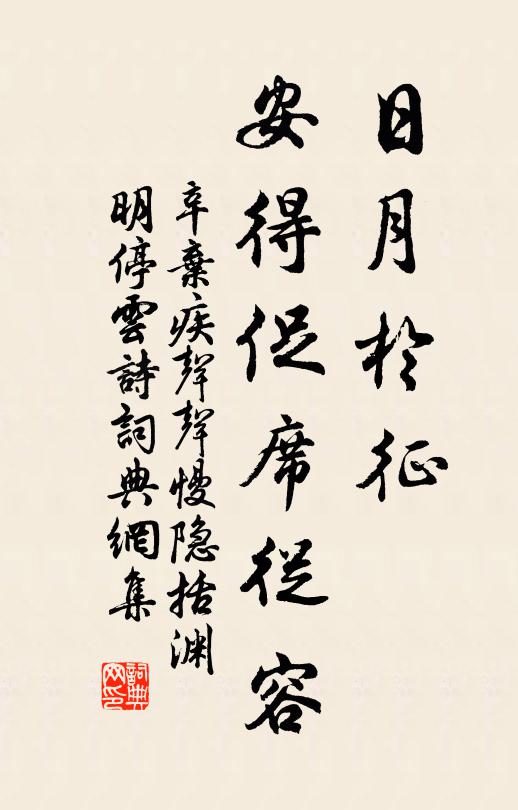 日月於征
安得促席從容
辛棄疾聲聲慢隐括淵
明停雲詩詞典網集
詞典
网印